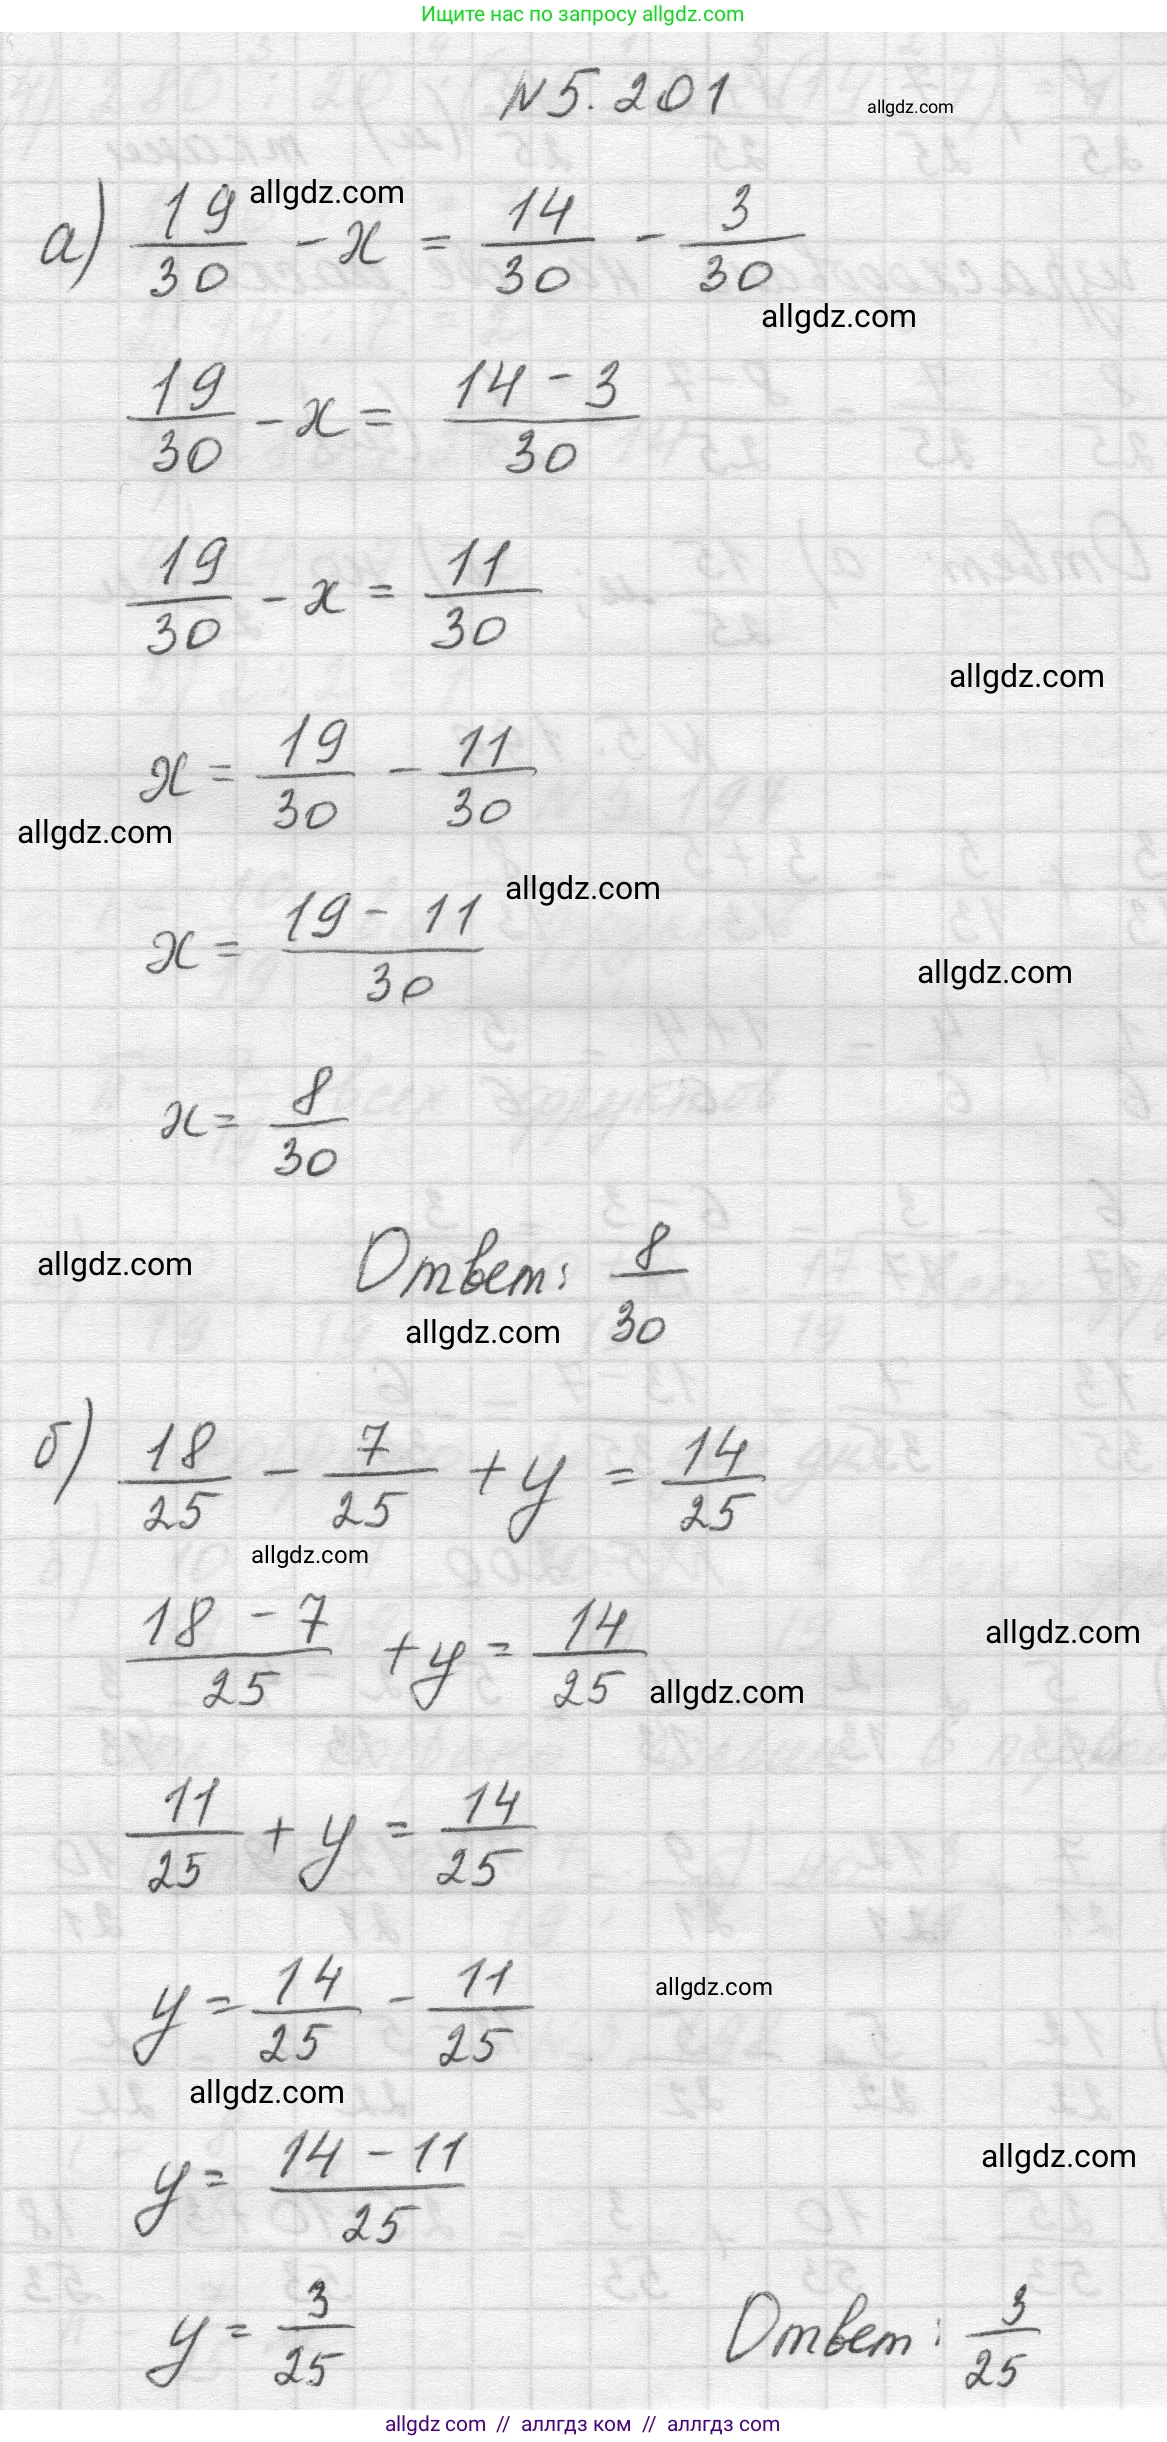 Ищите нас по запросу allgdz.com
№5.201
allgdz.com
а) 19/30 - x = 14/30 - 3/30
allgdz.com
allgdz.com
19/30 - x = (14 - 3)/30
19/30 - x = 11/30
allgdz.com
x = 19/30 - 11/30
allgdz.com
allgdz.com
x = (19 - 11)/30
allgdz.com
x = 8/30
allgdz.com
Ответ: 8/30
allgdz.com
б) 18/25 - 7/25 + y = 14/25
allgdz.com
(18 - 7)/25 + y = 14/25
allgdz.com
allgdz.com
11/25 + y = 14/25
y = 14/25 - 11/25
allgdz.com
allgdz.com
y = (14 - 11)/25
allgdz.com
y = 3/25 Ответ: 3/25
allgdz com // аллгдз ком // allgdz com